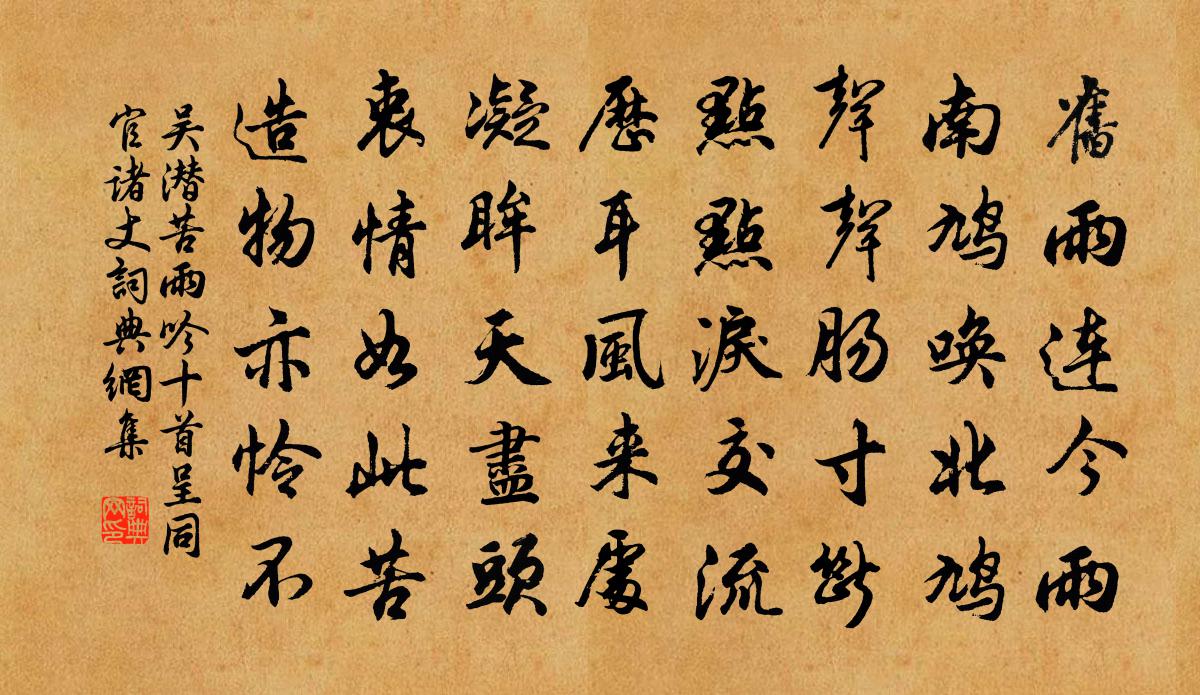 舊雨連今雨
南鳩喚北鳩
聲聲腸寸斷
點點淚交流
歷耳風来處
凝眸天盡頭
衷情如此苦
造物亦怜不
吴潜苦雨吟十首呈同
官诸丈詞典網集
詞典
网印